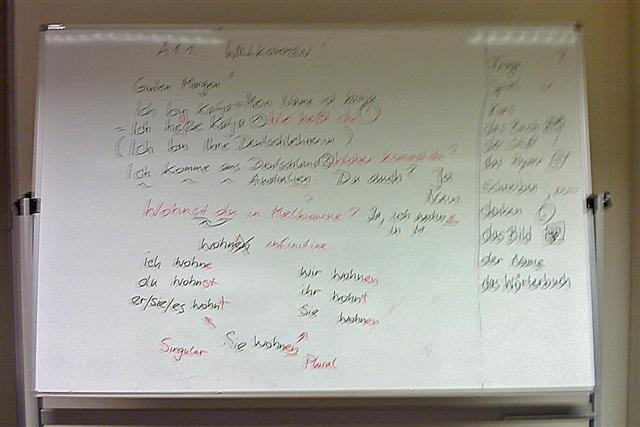 A1.1 WILLKOMMEN!
Guten Morgen!
Ich bin Katja = Mein Name ist Katja
= Ich heiße Katja Wie heißt du?
(Ich bin Ihre Deutschlehrerin)
Ich komme aus Deutschland Woher kommst du?
Australien Du auch? Ja
Nein
Wohnst du in Melbourne? Ja, ich wohne
in M
wohnen infinitive
ich wohne
du wohnst
er/sie/es wohnt
wir wohnen
ihr wohnt
Sie wohnen
Sie wohnen
Singular
Plural
Frage ?
das Buch
das Papier
schreiben
das Bild
der Name
das Wörterbuch